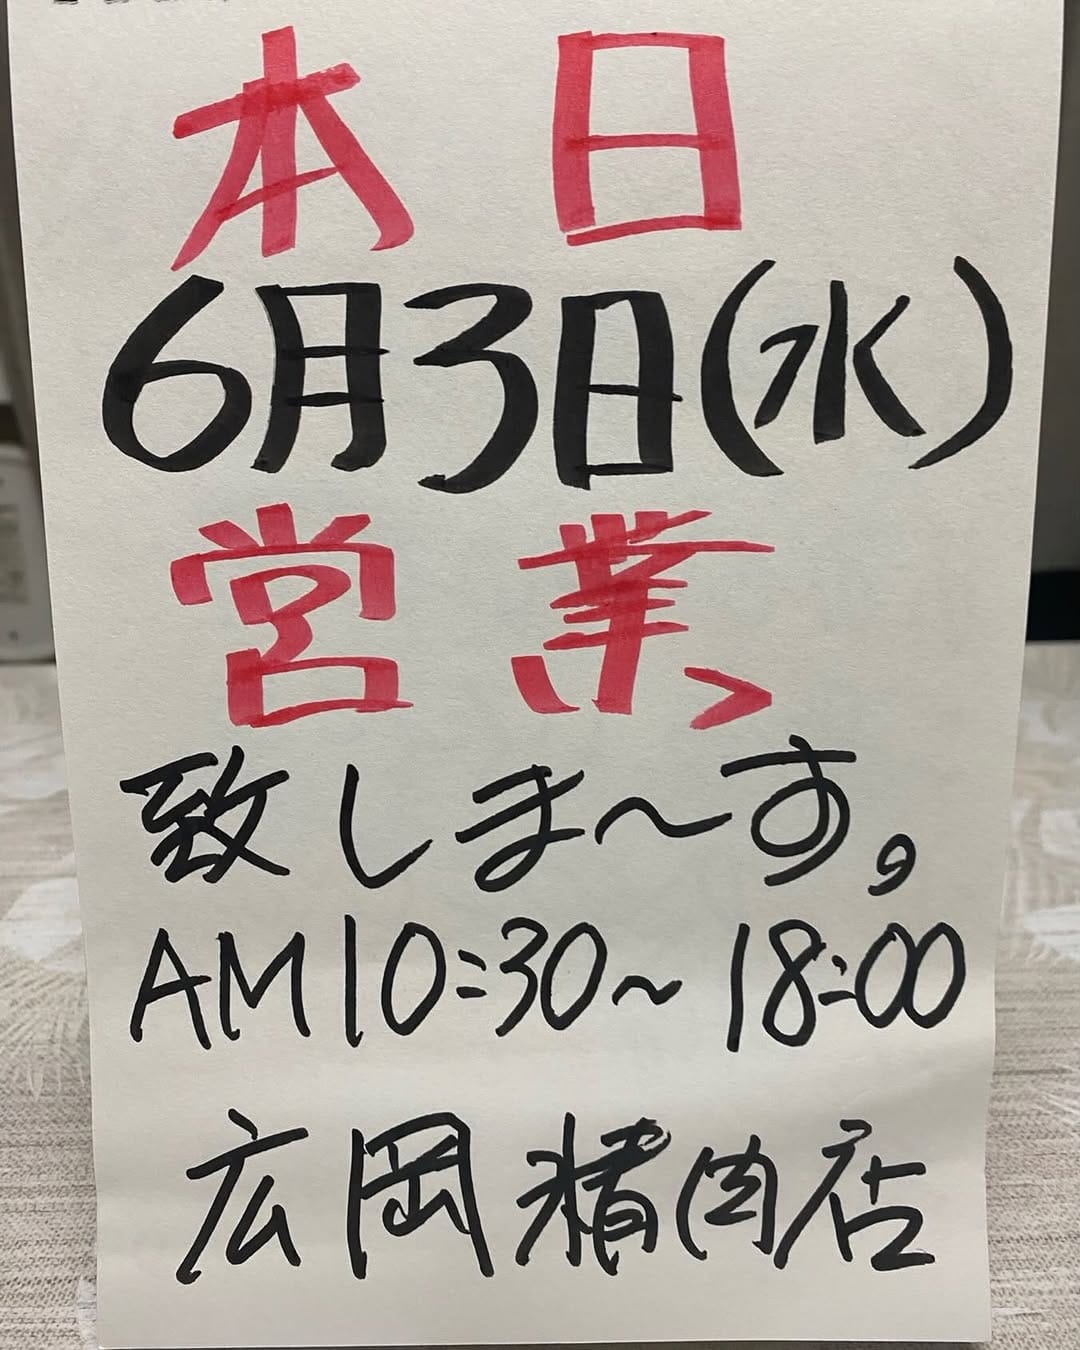 本日
6月3日(水)
営業、
致しま〜す。
AM10:30〜18:00
広岡精肉店